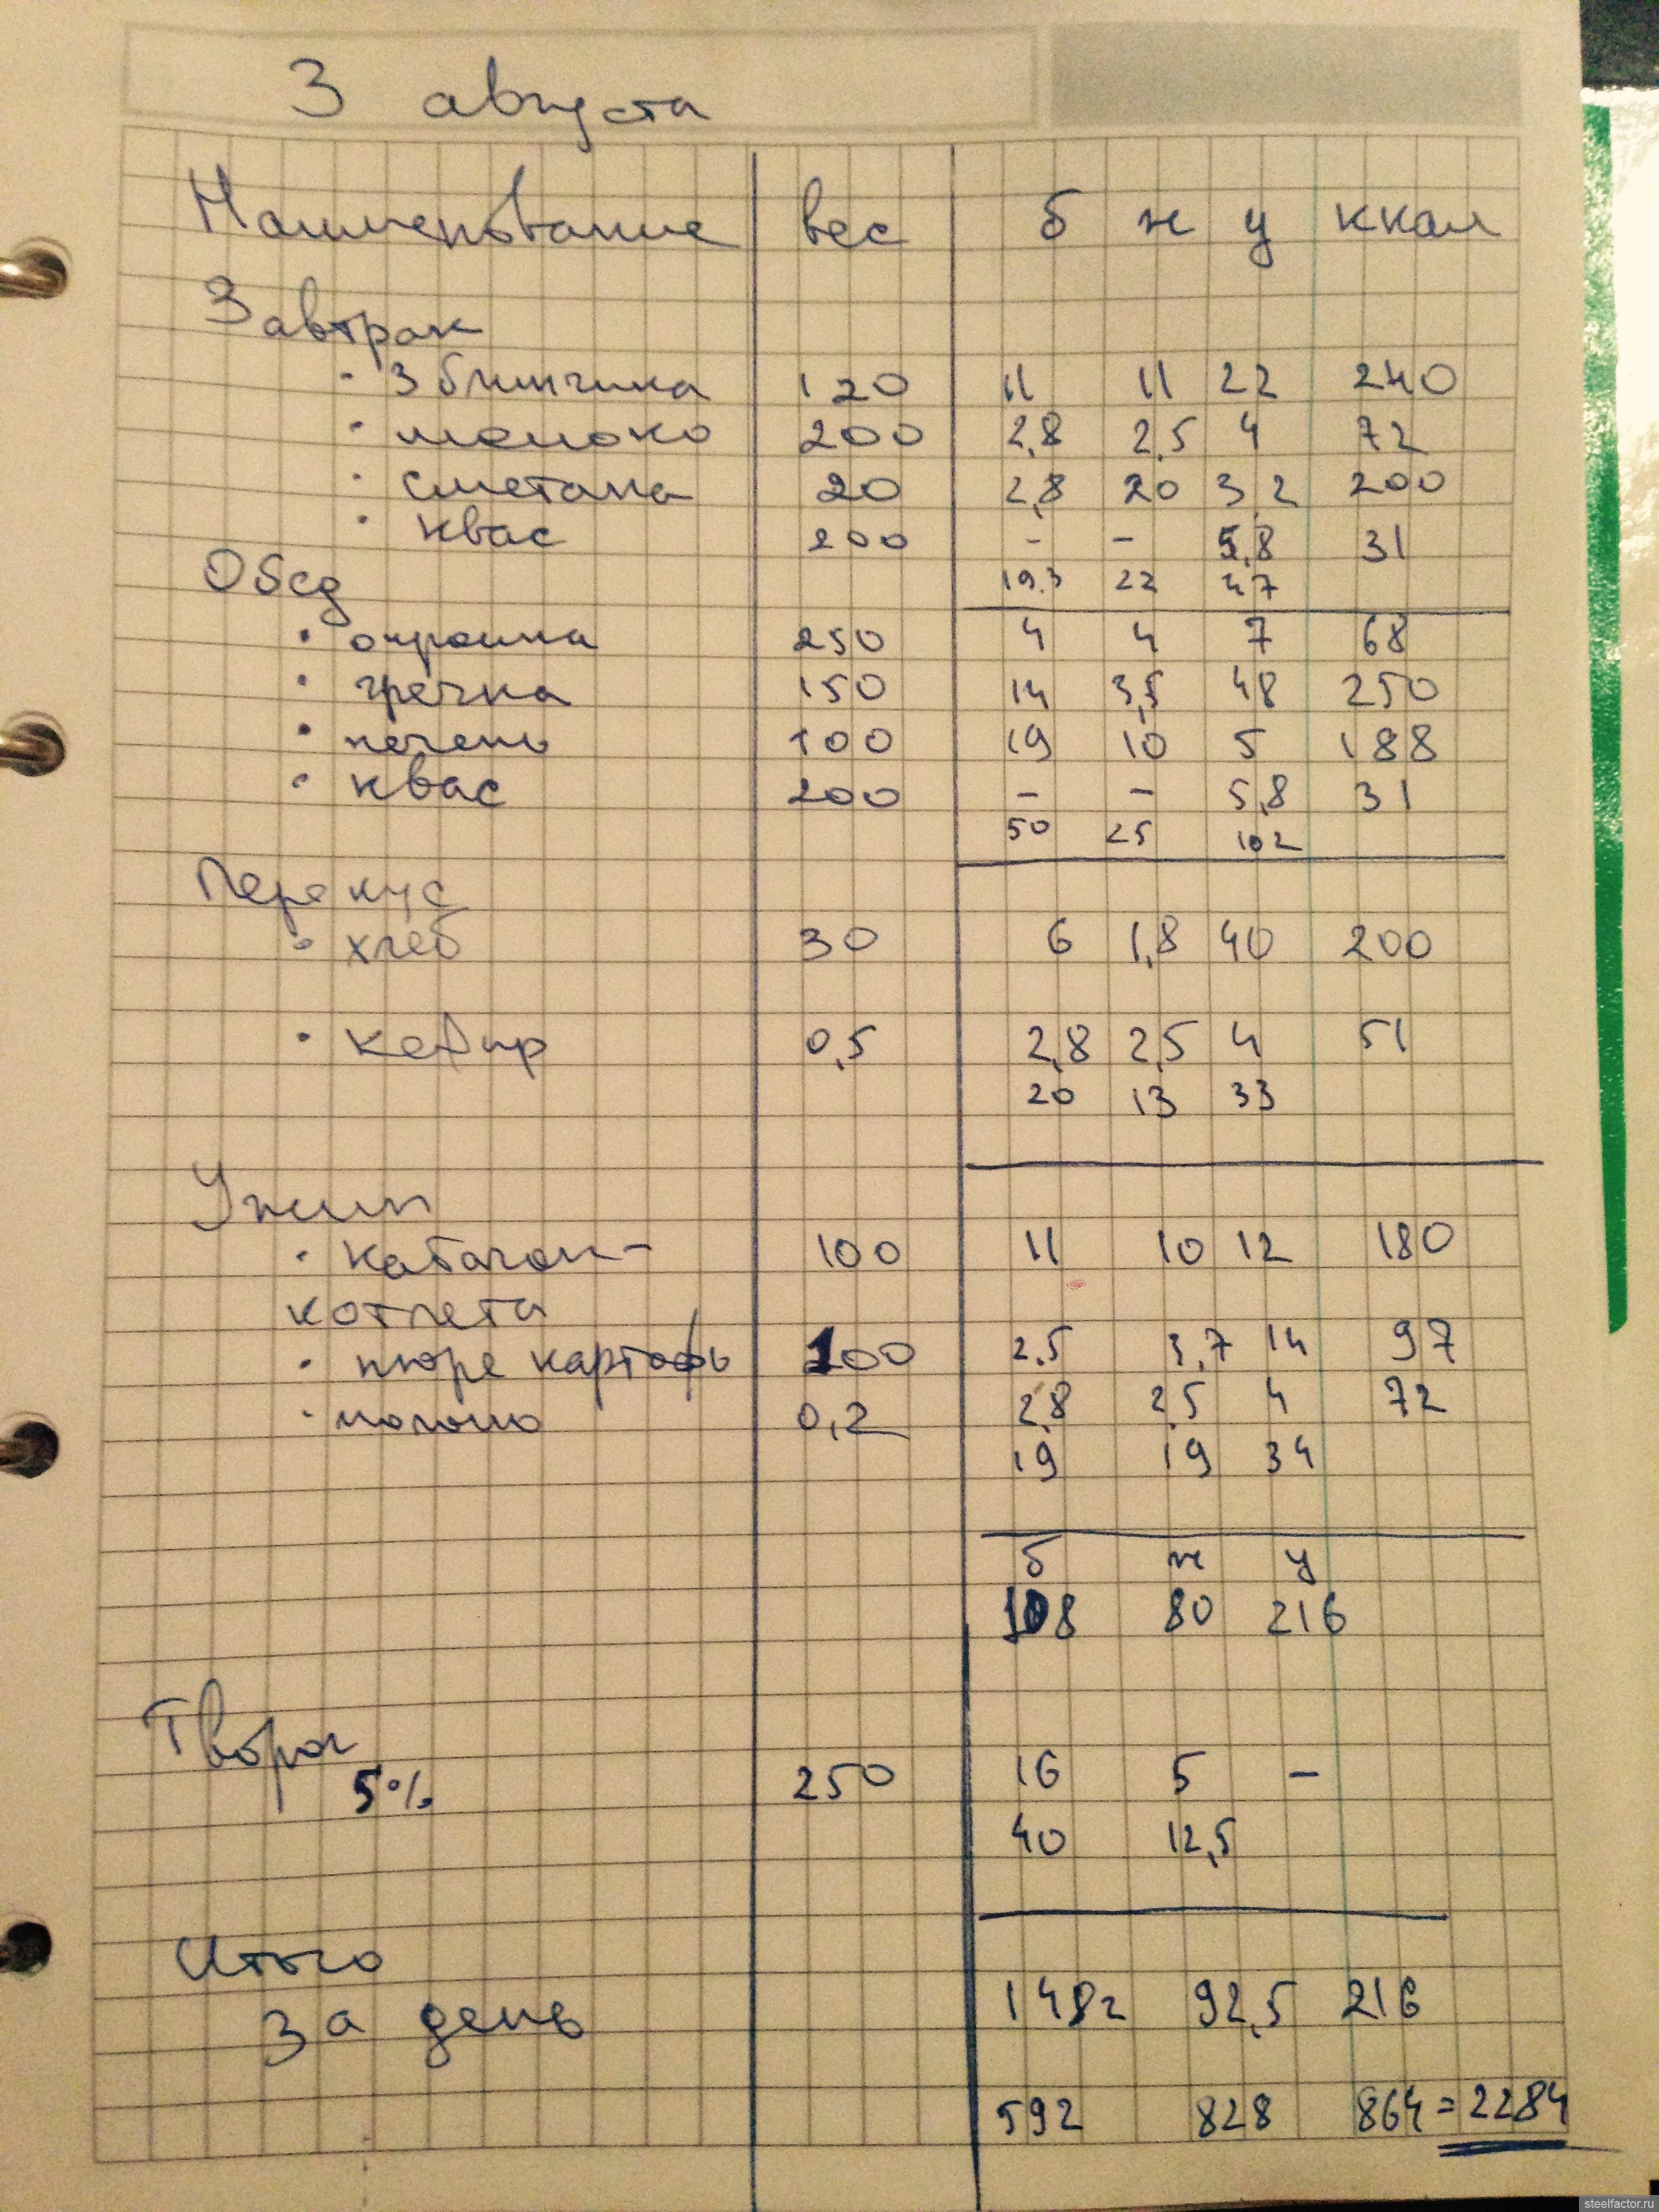 3 августа
Наименование вес б ж у ккал
Завтрак
· 3 блинчика 120 11 11 22 240
· молоко 200 2,8 2,5 4 72
· сметана 20 2,8 20 3,2 200
· квас 200 - - 5,8 31
Обед 19.3 22 47
· окрошка 250 4 4 7 68
· гречка 150 14 3,5 48 250
· печень 100 19 10 5 188
· квас 200 - - 5,8 31
50 25 102
Перекус
· хлеб 30 6 1,8 40 200
· кефир 0,5 2,8 2,5 4 51
20 13 33
Ужин
· кабачок- 100 11 10 12 180
котлета
· пюре картофь 100 2.5 3,7 14 97
· молоко 0,2 2,8 2,5 4 72
19 19 34
б ж у
108 80 216
Творог
5% 250 16 5 -
40 12,5
Итого
за день 148г 92,5 216
592 828 864 = 2284
steelfactor.ru